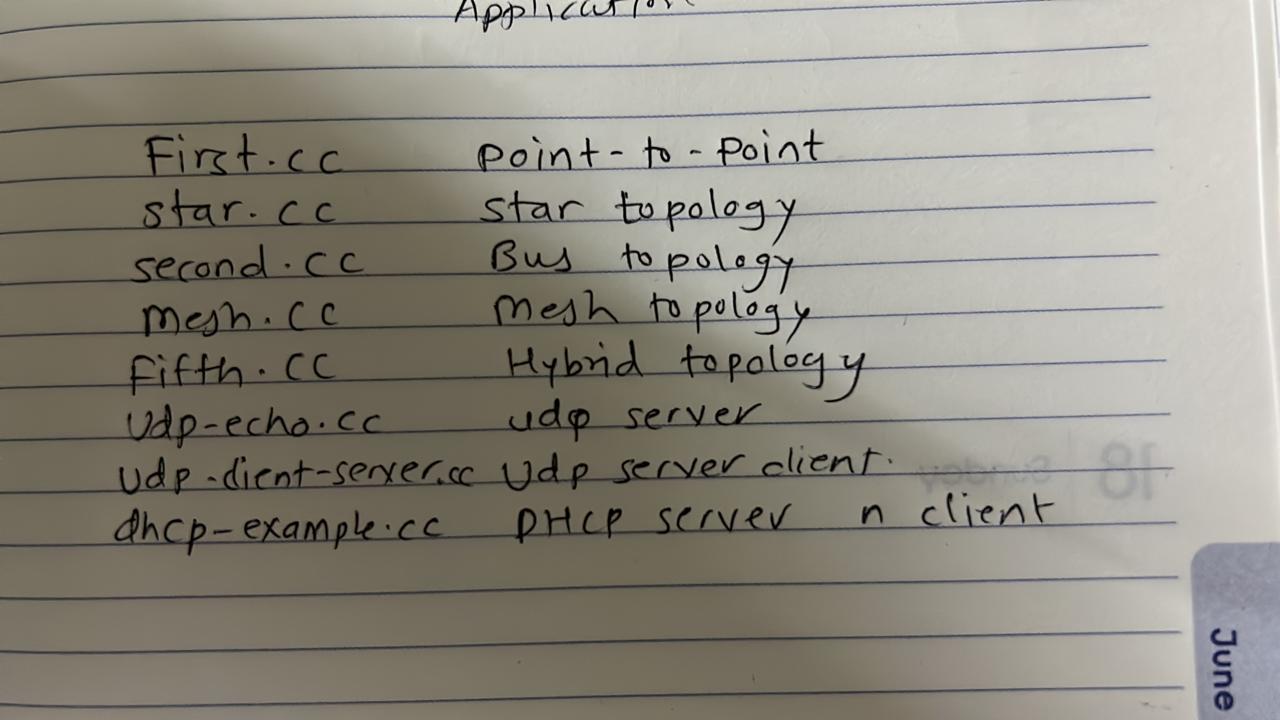 Application
First.cc point-to-point
star.cc star topology
second.cc Bus topology
mesh.cc mesh topology
fifth.cc Hybrid topology
Udp-echo.cc udp server
Udp-client-server.cc Udp server client.
dhcp-example.cc DHCP server n client
18 Sunday
June